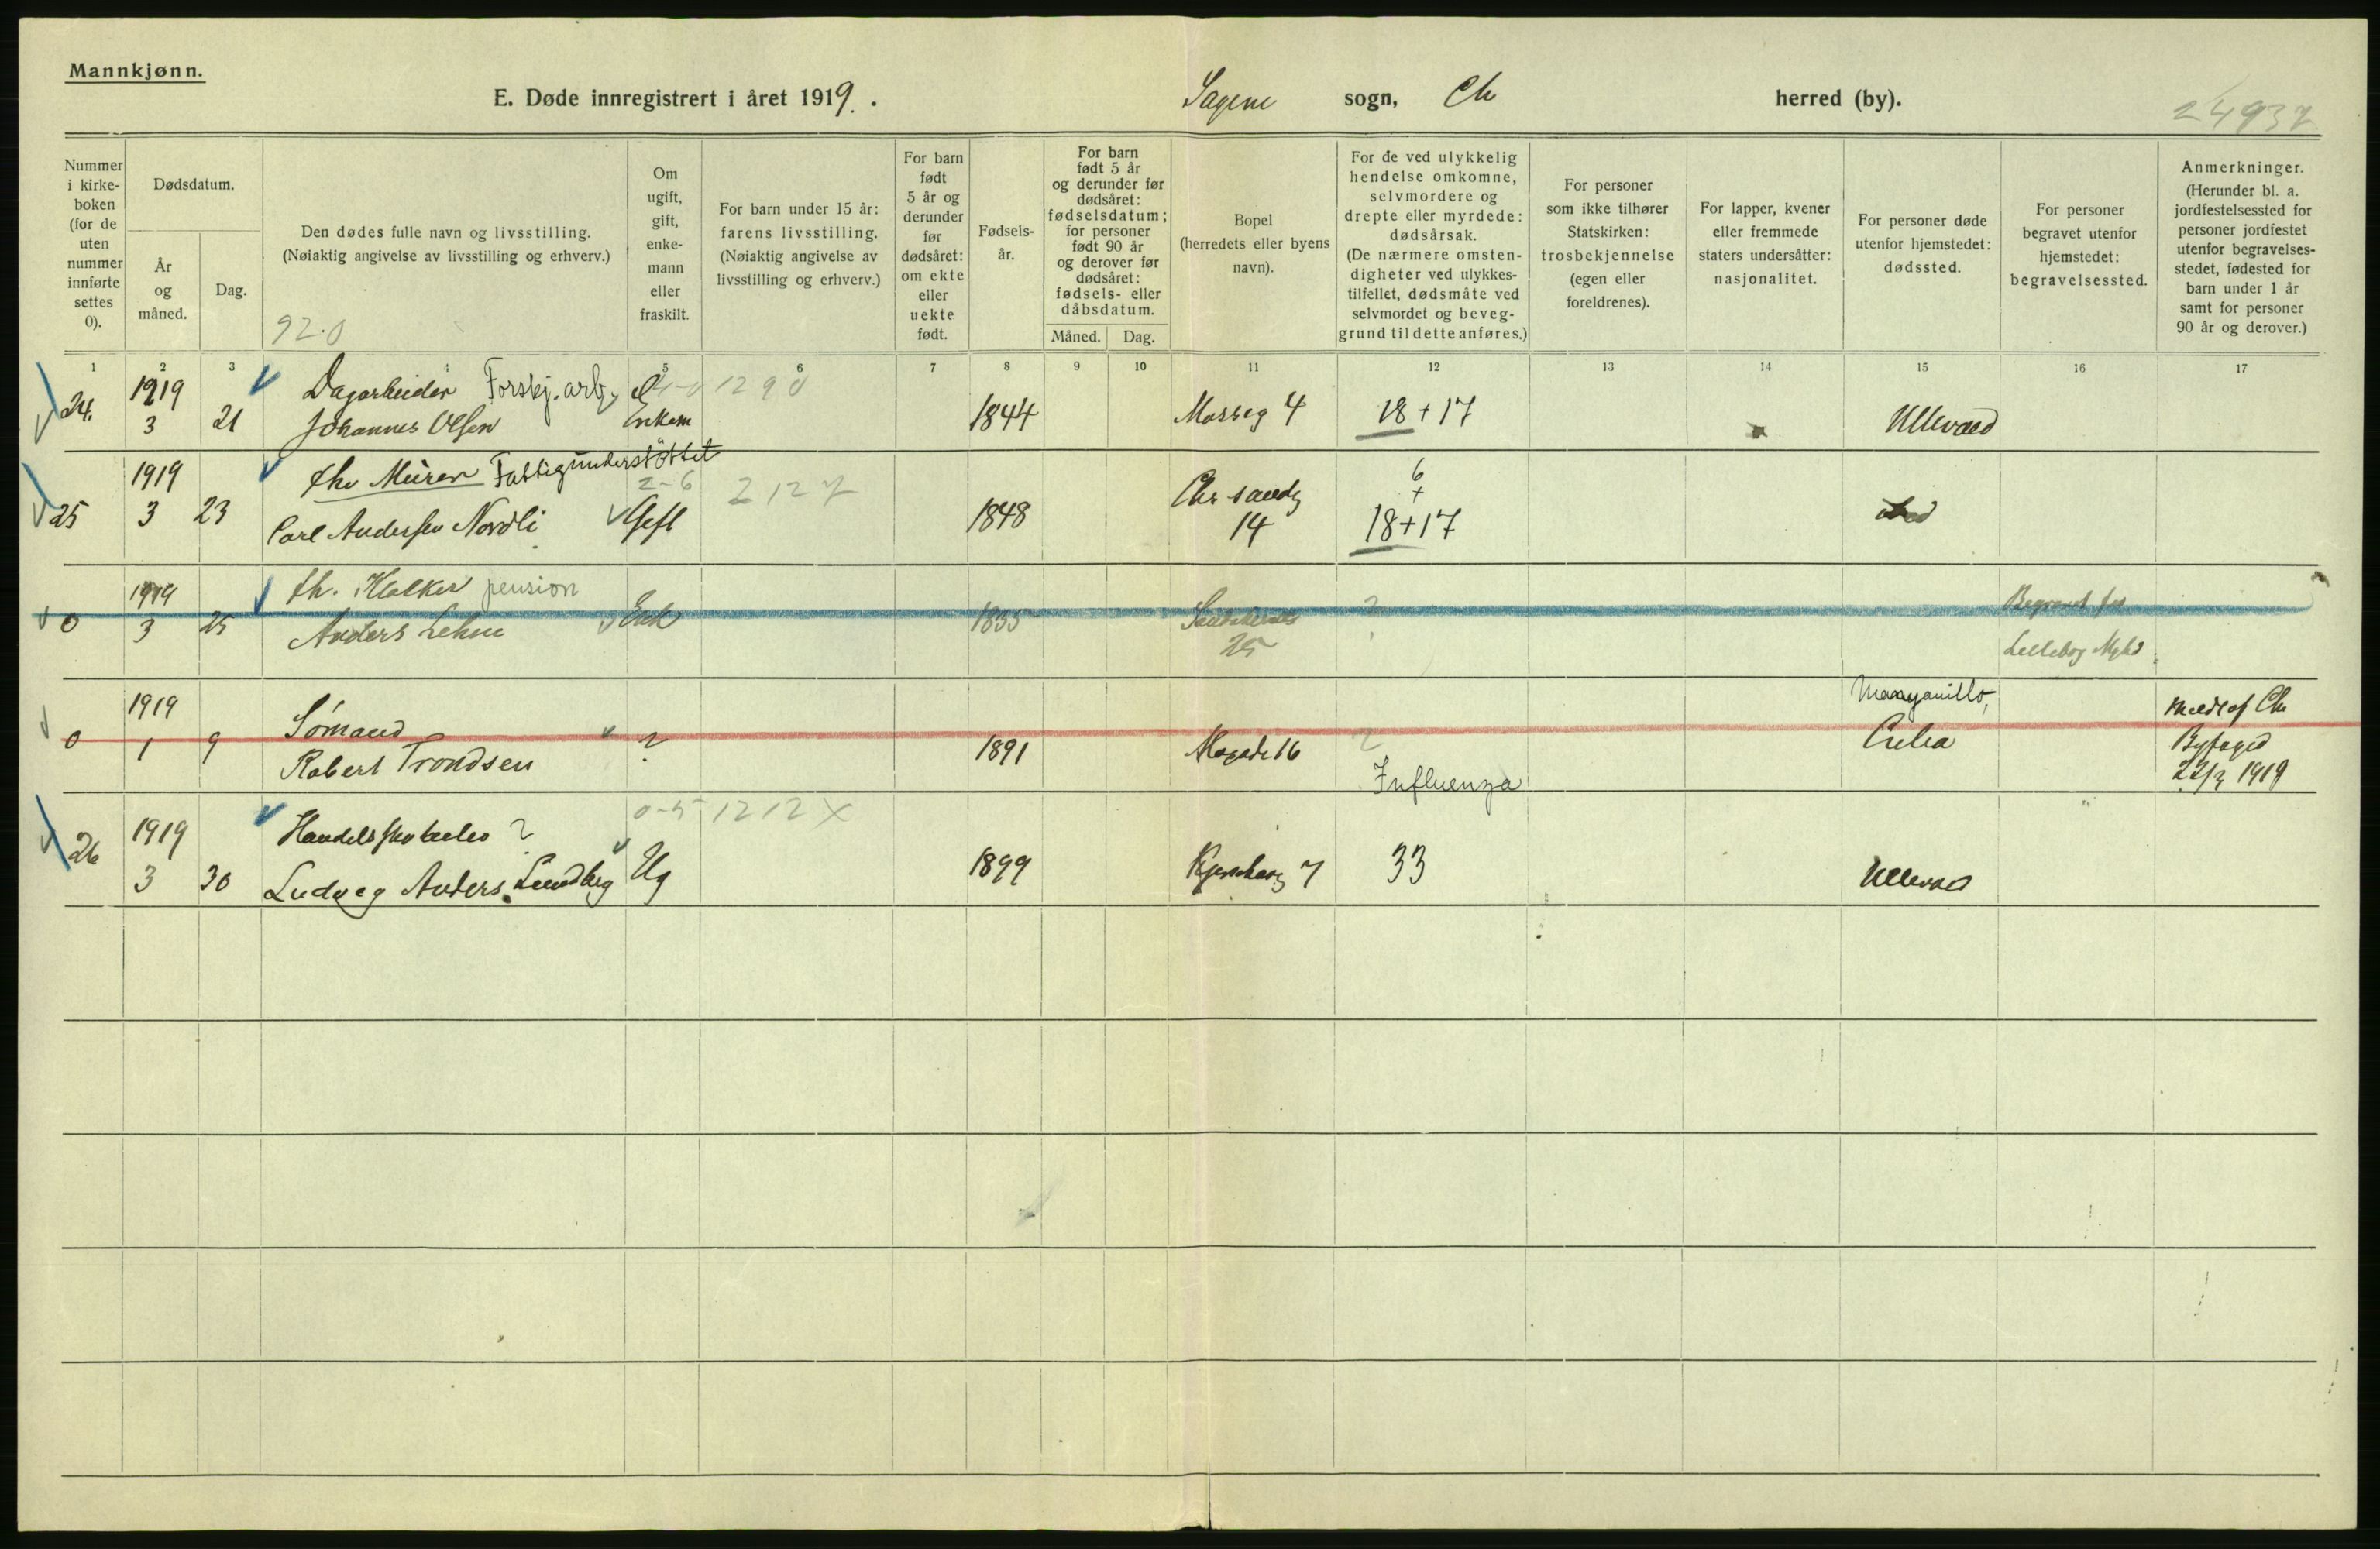 Mannkjønn.
E. Døde innregistrert i året 1919. Sagene sogn, Ch herred (by).
24937
Nummer i kirke-boken (for de uten nummer innførte settes 0).
Dødsdatum.
År og måned.
Dag.
Den dødes fulle navn og livsstilling.
(Nøiaktig angivelse av livsstilling og erhverv.)
92.0
Om ugift, gift, enke-mann eller fraskilt.
For barn under 15 år: farens livsstilling. (Nøiaktig angivelse av livsstilling og erhverv.)
For barn født 5 år og derunder før dødsåret: om ekte eller uekte født.
Fødsels-år.
For barn født 5 år og derunder før dødsåret: fødselsdatum; for personer født 90 år og derover før dødsåret: fødsels- eller dåbsdatum.
Måned. Dag.
Bopel (herredets eller byens navn).
For de ved ulykkelig hendelse omkomne, selvmordere og drepte eller myrdede: dødsårsak. (De nærmere omsten-digheter ved ulykkes-tilfellet, dødsmåte ved selvmordet og beveg-grund til dette anføres.)
For personer som ikke tilhører Statskirken: trosbekjennelse (egen eller foreldrenes).
For lapper, kvener eller fremmede staters undersåtter: nasjonalitet.
For personer døde utenfor hjemstedet: dødssted.
For personer begravet utenfor hjemstedet: begravelsessted.
Anmerkninger. (Herunder bl. a. jordfestelsessted for personer jordfestet utenfor begravelses-stedet, fødested for barn under 1 år samt for personer 90 år og derover.)
1 2 3 4 5 6 7 8 9 10 11 12 13 14 15 16 17
24. 1919 Dagarbeider Forskj. arb. 1290
3 21 Johannes Olsen Enkem 1844 Mosseg 4 18+17 Ullevaal
1919 fhv Murer Fattigunderstöttet 2-6 2127 6 +
25 3 23 Carl Andersen Nordli Gift 1848 Chr sandg 14 18+17
1919 fh. Klokker pension
0 3 25 Anders Lehne Enk 1835 25 ? Begravet fra Lilleborg
1919 Sømand Manzanillo, meldt af Chr
0 1 9 Robert Trondsen ? 1891 16 ? Influenza Cuba Byfoged 22/3 1919
0-5 1212 X
26 1919 Handelsskoleelev ?
3 30 Ludvig Anders Lundberg Ug 1899 7 33 Ullevaal